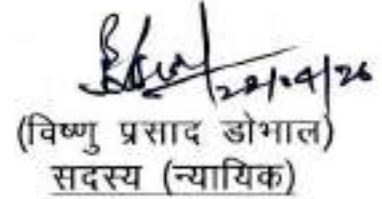 22/04/26
(विष्णु प्रसाद डोभाल)
सदस्य (न्यायिक)